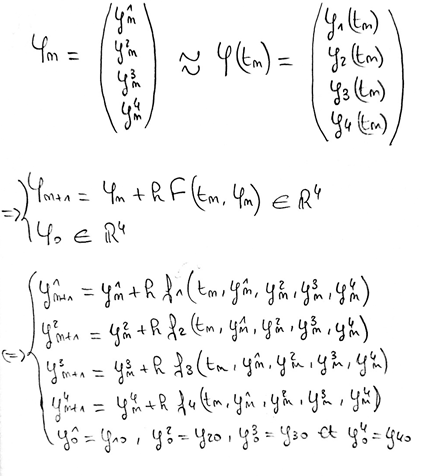 φ_m = (y_m^1 y_m^2 y_m^3 y_m^4) ≈ φ(t_m) = (y_1(t_m) y_2(t_m) y_3(t_m) y_4(t_m))
=> { φ_{m+1} = φ_m + h F(t_m, φ_m) ∈ ℝ^4
φ_0 ∈ ℝ^4
(=) { y_{m+1}^1 = y_m^1 + h f_1(t_m, y_m^1, y_m^2, y_m^3, y_m^4)
y_{m+1}^2 = y_m^2 + h f_2(t_m, y_m^1, y_m^2, y_m^3, y_m^4)
y_{m+1}^3 = y_m^3 + h f_3(t_m, y_m^1, y_m^2, y_m^3, y_m^4)
y_{m+1}^4 = y_m^4 + h f_4(t_m, y_m^1, y_m^2, y_m^3, y_m^4)
y_0^1 = y_{10}, y_0^2 = y_{20}, y_0^3 = y_{30} et y_0^4 = y_{40}